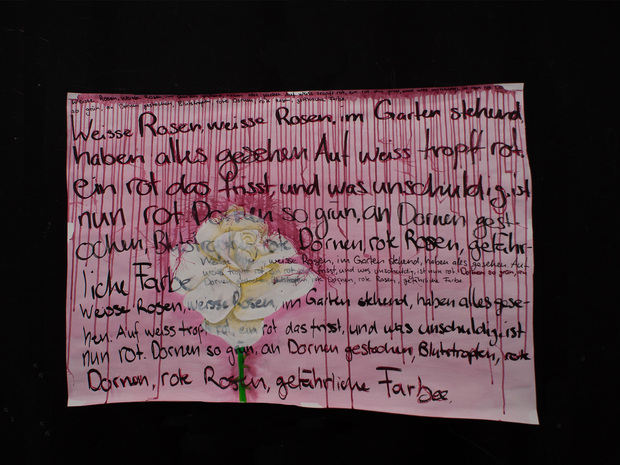 so grün, an Dornen gestochen, Blutstropfen, rote Dornen, rote Rosen, gefährliche Farbe
Weisse Rosen, weisse Rosen, im Garten stehend,
haben alles gesehen Auf weiss tropft rot.
ein rot das frisst, und was unschuldig ist
nun rot. Dornen so grün, an Dornen gest-
ochen, Blutstropfen, rote Dornen, rote Rosen, gefähr-
liche Farbe
Weisse Rosen, weisse Rosen, im Garten stehend, haben alles gesehen Auf
weiss tropft rot ein rot das frisst, und was unschuldig ist nun rot. Dornen so grün, an
Dornen gestochen, Blutstropfen, rote Dornen, rote Rosen, gefährliche Farbe
Weisse Rosen, weisse Rosen, im Garten stehend, haben alles gese-
hen. Auf weiss tropft rot, ein rot das frisst, und was unschuldig ist
nun rot. Dornen so grün, an Dornen gestochen, Blutstropfen, rote
Dornen, rote Rosen, gefährliche Farbee.